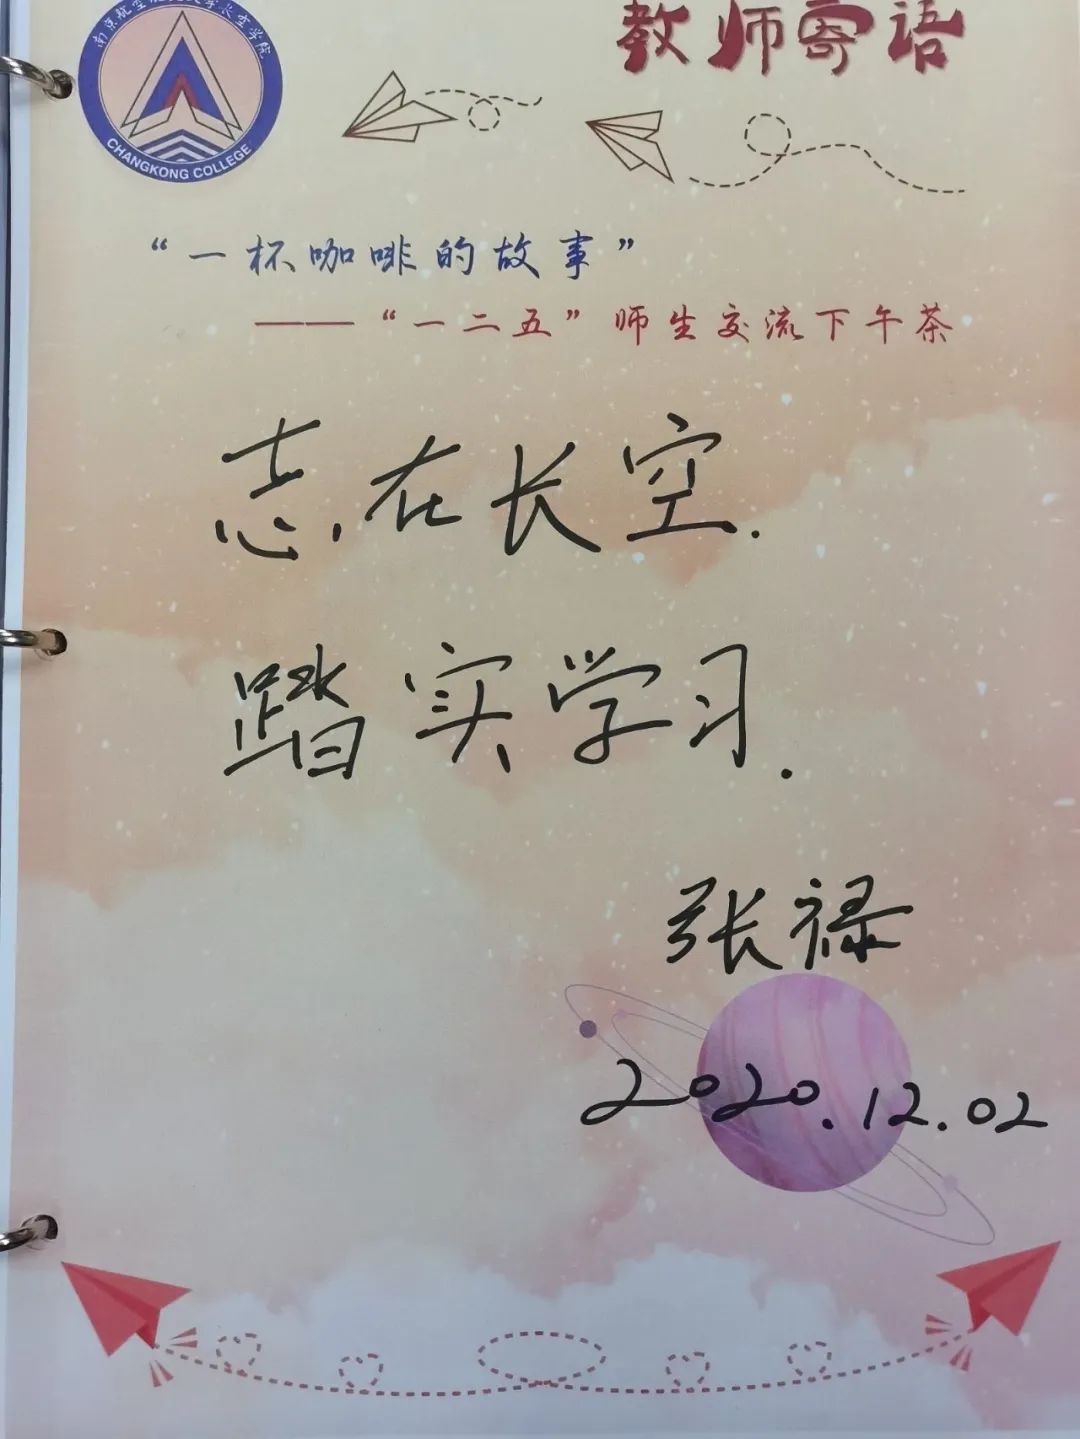 南京航空航天大学长空学院
CHANGKONG COLLEGE
教师寄语
“一杯咖啡的故事”
——“一二五”师生交流下午茶
志在长空.
踏实学习.
张禄
2020.12.02